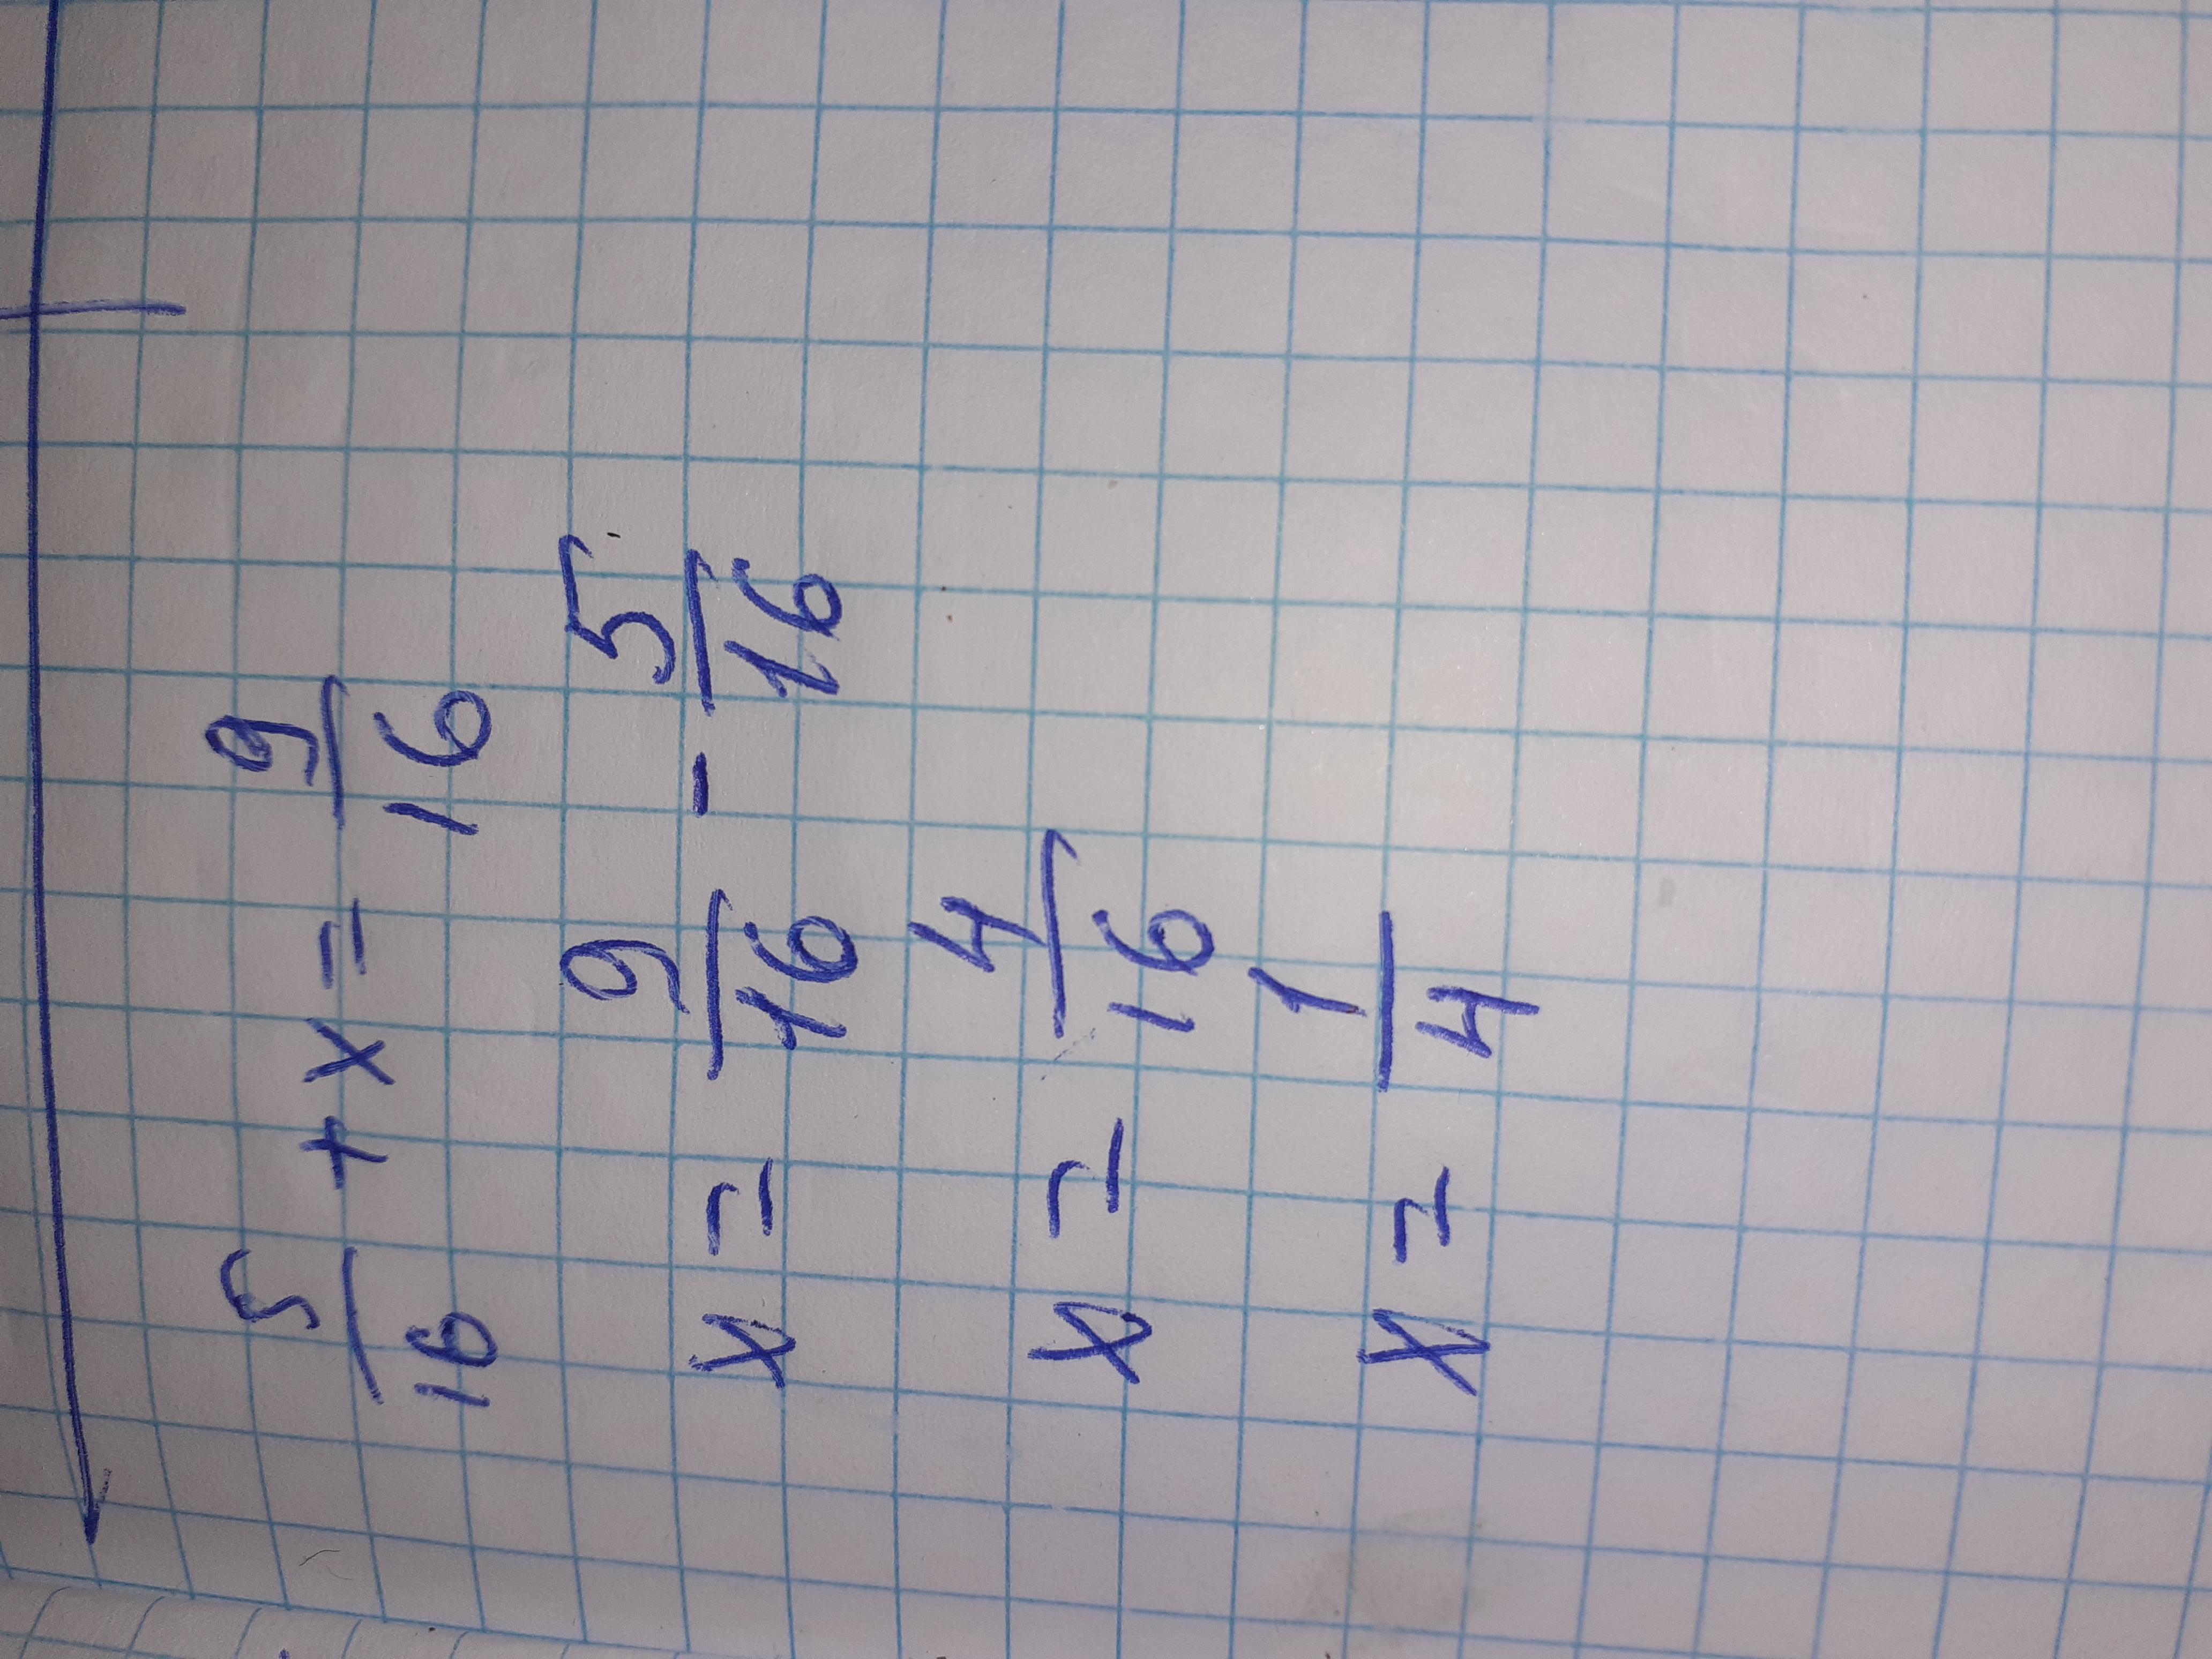 5/16 + x = 9/16
x = 9/16 - 5/16
x = 4/16
x = 1/4